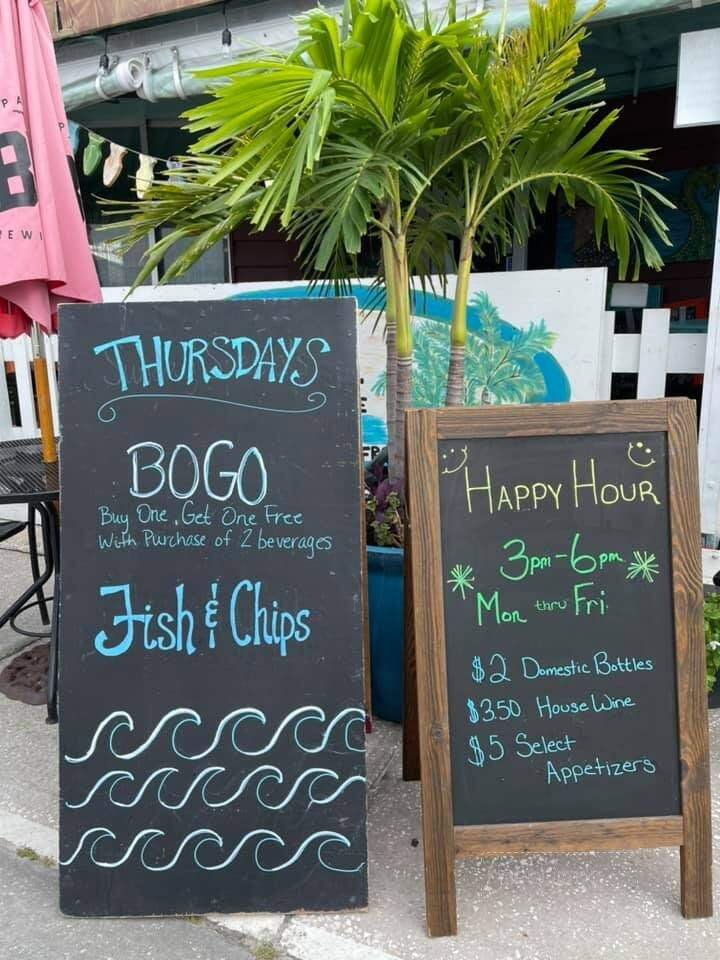 THURSDAYS
BOGO
Buy One, Get One Free
With Purchase of 2 beverages
Fish & Chips
HAPPY HOUR
3pm-6pm
Mon thru Fri.
$2 Domestic Bottles
$3.50 House Wine
$5 Select
Appetizers